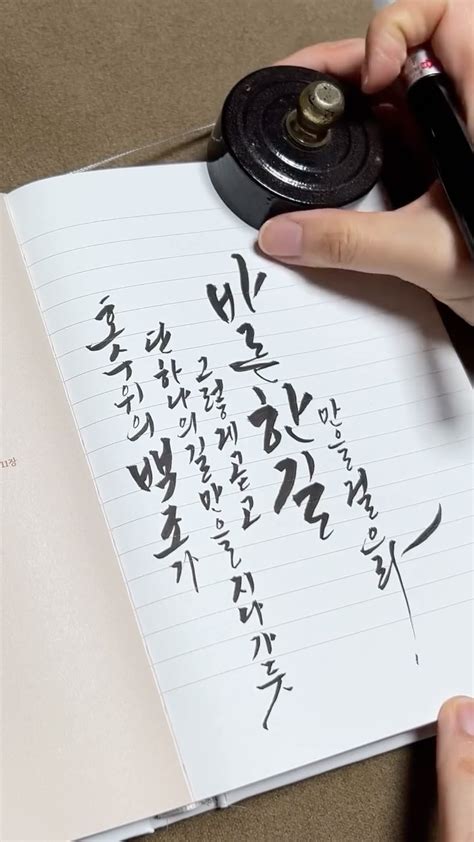 호수위의 백조가
단 하나의 길만을 지나가듯
그렇게 곧고
바른 한길
만을 걸으리
11장